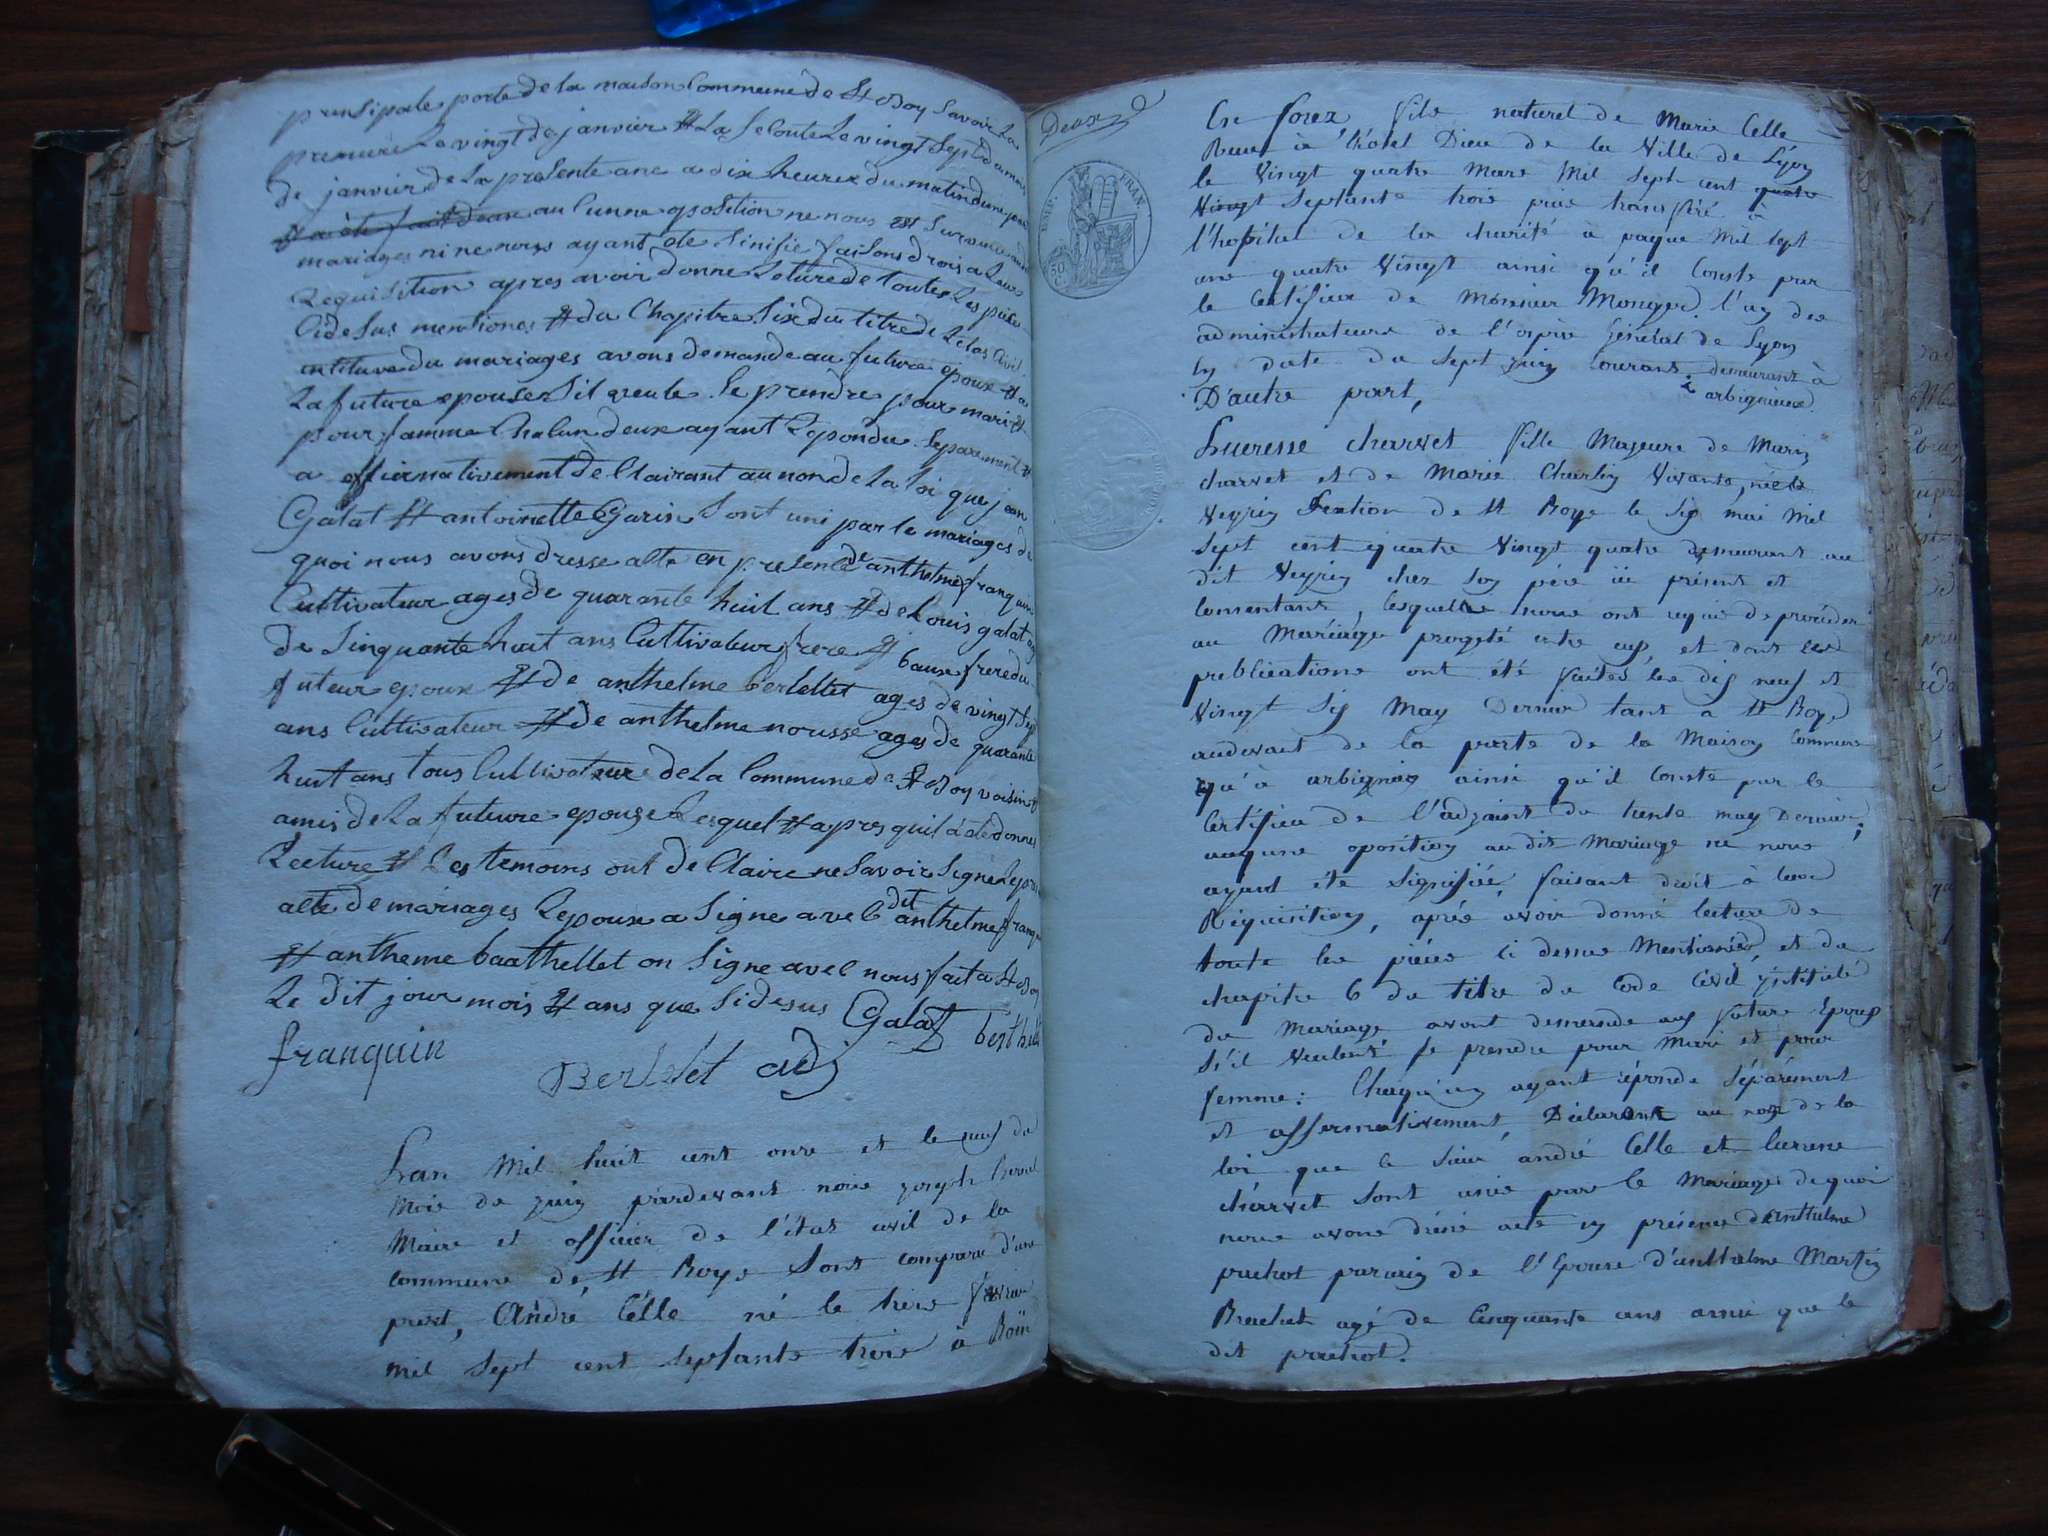 prensipale porte de la maison Commune de St Boy Savoir La
premiere Le vingt de janvier et La Seconte Le vingt Sept du mois
de janvier de La presente ane a dix heures du matin
au Cunne oposition ne nous est Survenue
mariages ni ne nous ayant ete Sinifie faisons drois a Leurs
Requisition apres avoir donne Leture de toutes Les pieces
Cide Sus mentiones et du Chapitre Six du titre de Letas Civil
intitule du mariages avons demande au future epoux et a
La future epouse Sil veule Se prendre pour mari et
pour famme Chacun deux ayant Repondu Separement et
a effirmativement de Clairant au non de La Loi que jean
Galat et antoinette Garin Sont uni par le mariages de
quoi nous avons dresse atte en presence de anthelme franquin
Cultivateur ages de quarante huit ans et de Louis galat ages
de Sinquante huit ans Cultivateur frere et baux frere du
futeur epoux et de anthelme berlellet ages de vingt Sept
ans Cultivateur et de anthelme nousse ages de quarante
huit ans tous Cultivateur de La Commune de St Boy voisin et
amis de La future epouse Lesquel et apres quil a ete donner
Lecture et Les temoins ont de Claire ne Savoir Signer
atte de mariages Lepoux a Signe avec dit anthelme franquin
et antheme baathellet on Signe avec nous fait a St Boy
Le dit jour mois et ans que Sidesus Galat
franquin
adj
Lan Mil huit cent onze et le neuf du
Mois de juin pardevant nous joseph
Maire et officier de l'étas civil de la
commune de St Boys Sont comparu d'une
part, André Célle né le trois février
mil sept cent septante trois à Boën
Deux
EMP. FRAN.
50 C.
En forez fils naturel de Marie Celle
Recu à l'hôtel Dieu de la Ville de Lÿon
le Vingt quatre Mars Mil Sept cent quatre
Vingt Septante trois puis transféré à
l'hopital de la charité à paque Mil Sept
cent quatre Vingt ainsi qu'il Conste par
le Certificat de Monsieur Monger l'un des
administrateurs de l'ospice Général de Lyon
En date du Sept juin Courant. demeurant à
D'autre part, arbignieux.
Lucresse charvet fille Majeure de Marin
charvet et de Marie Charlin Vivants, née à
Veyrin Section de St Boys le Six mai Mil
Sept cent quatre Vingt quatre demeurant au
dit Veyrin chez Son père ici présent et
Consentant, Lesquelles nous ont requis de procéder
au Mariage progeté entre eux, et dont les
publications ont été faites les dix neuf et
Vingt Six May Dernier tant a St Boys
audevant de la porte de la Maison Commune
qu'à arbignieu ainsi qu'il Conste par le
Certificat de l'adjoint du trente may Dernier,
aucune oposition au dit Mariage ne nous
ayant été Signifiée, faisant droit à leur
Réquisition, aprés avoir donné lecture de
toute les piéces ci dessus Mentionnées, et du
chapitre 6 du titre du Code Civil intitulé
du Mariage avont demendé aux future Epoux
S'il veulent se prendre pour Mari et pour
femme: Chaqu'un ayant répondu Séparément
et affirmativement, Déclarons au nom de la
loi que le Sieur andré Celle et lucresse
charvet Sont unis par le Mariage de quoi
nous avons dréssé acte en présence d'anthelme
prachot parain de l'Epouse d'anthelme Martin
Brachet agé de Cinquante ans ainsi que le
dit prachot.